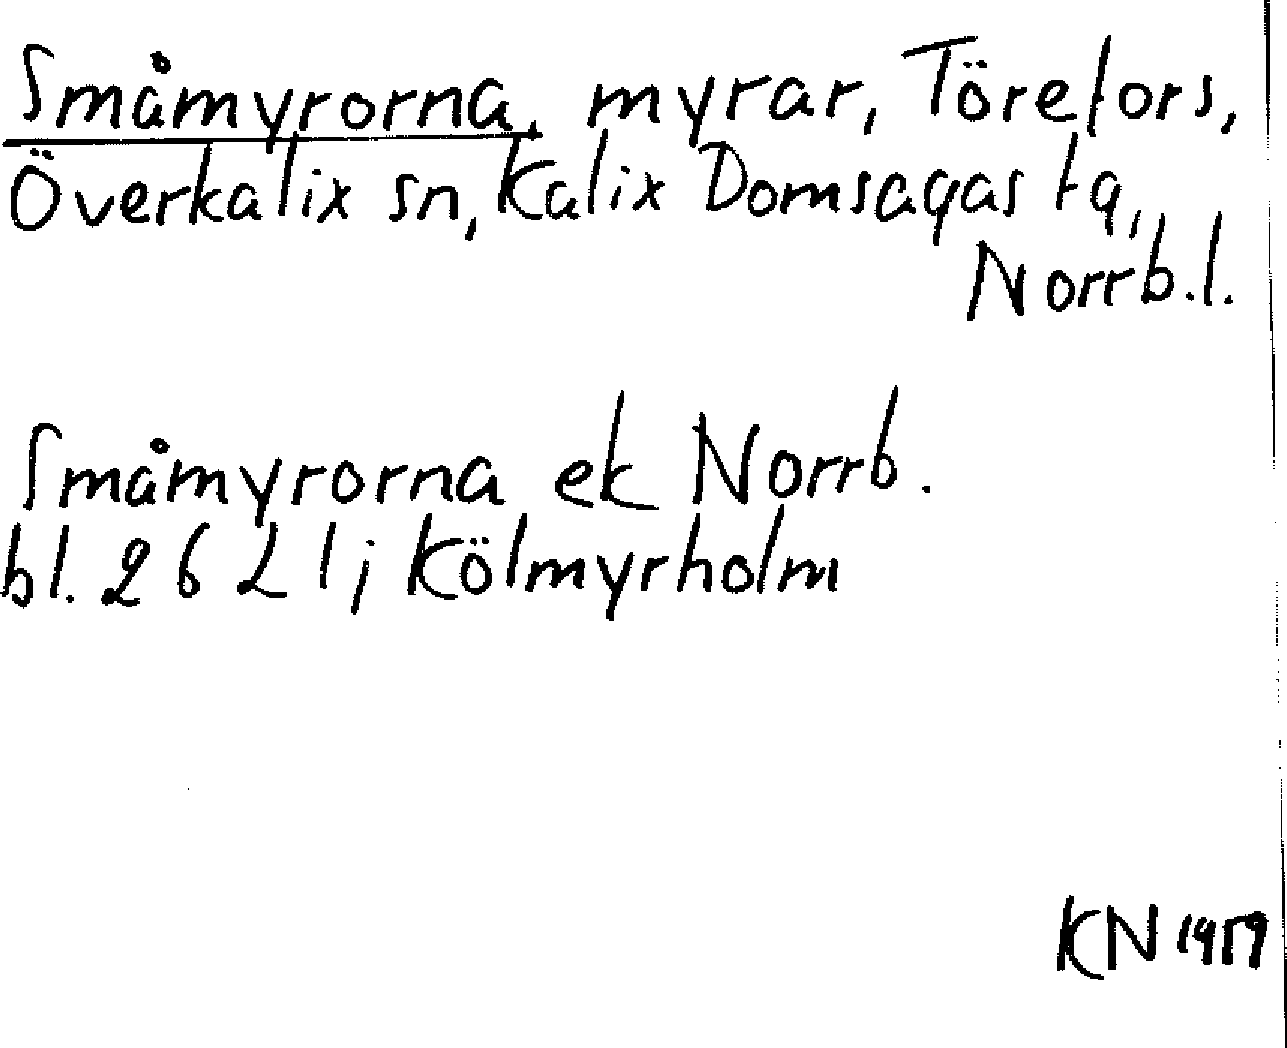 Småmyrorna, myrar, Törefors,
Överkalix sn, Kalix Domsagas tg,
Norrb.l.
Småmyrorna ek Norrb.
bl. 26 21; Kölmyrholm
KN 1959